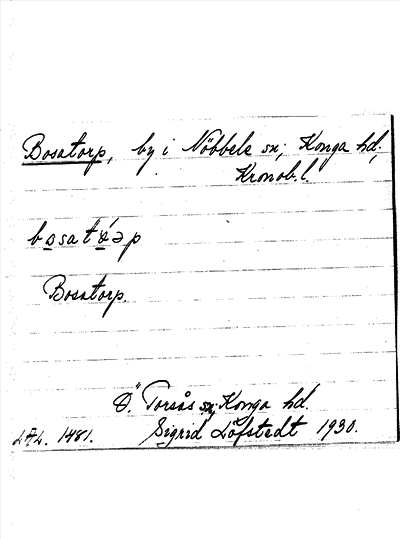 Bosatorp, by i Nöbbele sn; Konga hd;
Kronob. l.
bosatɷ́əp
Bosatorp.
Ö. Torsås sn; Konga hd.
LAL. 1481. Sigrid Löfstedt 1930.